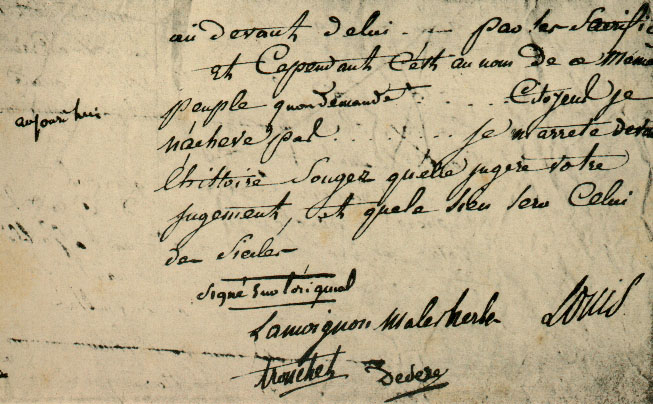 au devant de lui . — par les Sacrific
Et Cependant C'est au nom de ce même
aujourd'hui
peuple qu'on demande . . . . Citoyens je
n'acheve pas . . . . je m'arrete devan
l'histoire Songez qu'elle jugera votre
jugement, et que le sien sera Celui
des Siecles
signé sur l'original
Lamoignon Malesherbe Louis
Tronchet Deseze